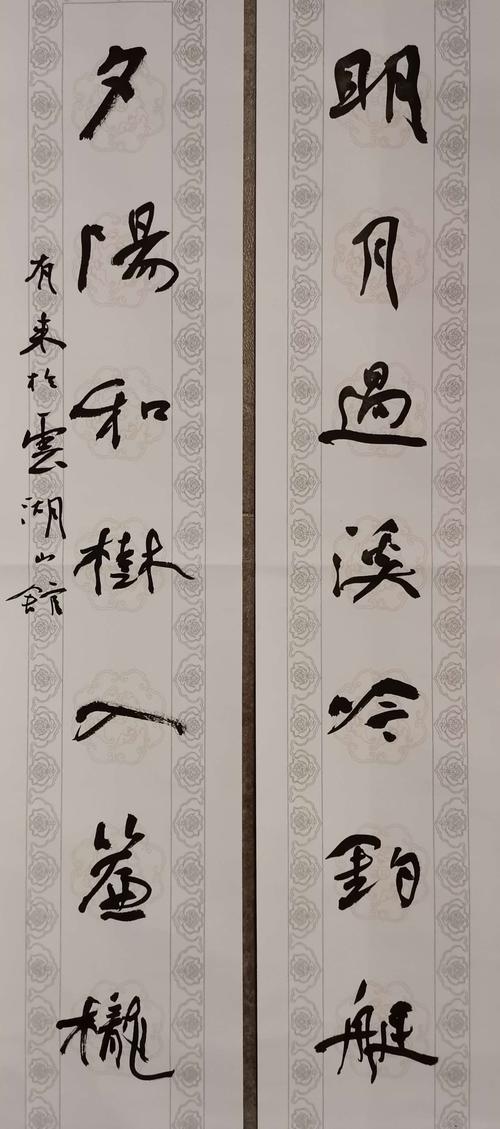 明月過溪吟釣艇
夕陽和樹入簾櫳
有來於雲湖山館